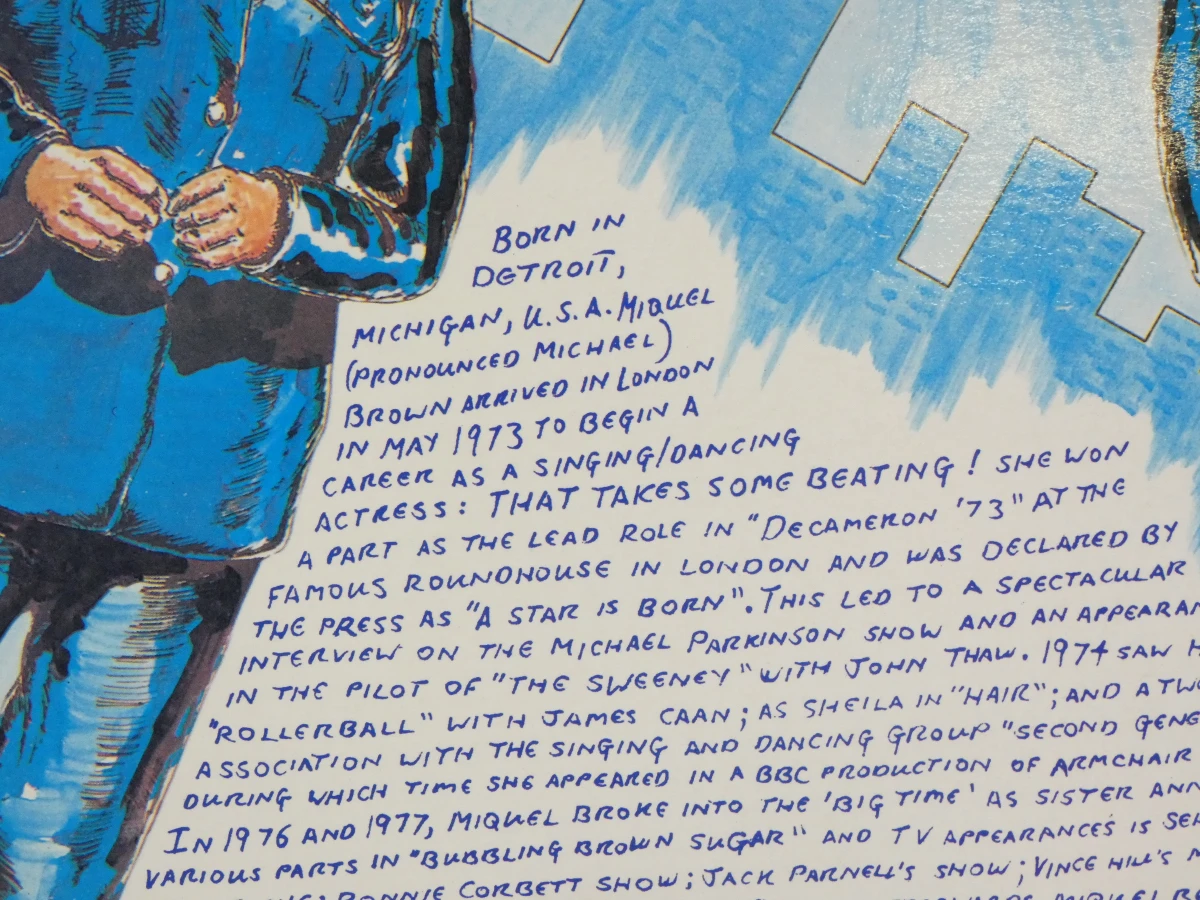 BORN IN
DETROIT,
MICHIGAN, U.S.A. MIQUEL
(PRONOUNCED MICHAEL)
BROWN ARRIVED IN LONDON
IN MAY 1973 TO BEGIN A
CAREER AS A SINGING/DANCING
ACTRESS: THAT TAKES SOME BEATING! SHE WON
A PART AS THE LEAD ROLE IN "DECAMERON '73" AT THE
FAMOUS ROUNDHOUSE IN LONDON AND WAS DECLARED BY
THE PRESS AS "A STAR IS BORN". THIS LED TO A SPECTACULAR
INTERVIEW ON THE MICHAEL PARKINSON SHOW AND AN APPEARAN
IN THE PILOT OF "THE SWEENEY" WITH JOHN THAW. 1974 SAW H
"ROLLERBALL" WITH JAMES CAAN; AS SHEILA IN "HAIR"; AND A TWO
ASSOCIATION WITH THE SINGING AND DANCING GROUP "SECOND GENE
DURING WHICH TIME SHE APPEARED IN A BBC PRODUCTION OF ARMCHAIR
IN 1976 AND 1977, MIQUEL BROKE INTO THE 'BIG TIME' AS SISTER ANN
VARIOUS PARTS IN "BUBBLING BROWN SUGAR" AND TV APPEARANCES IS SER
RONNIE CORBETT SHOW; JACK PARNELL'S SHOW; VINCE HILL'S M
MIQUEL B